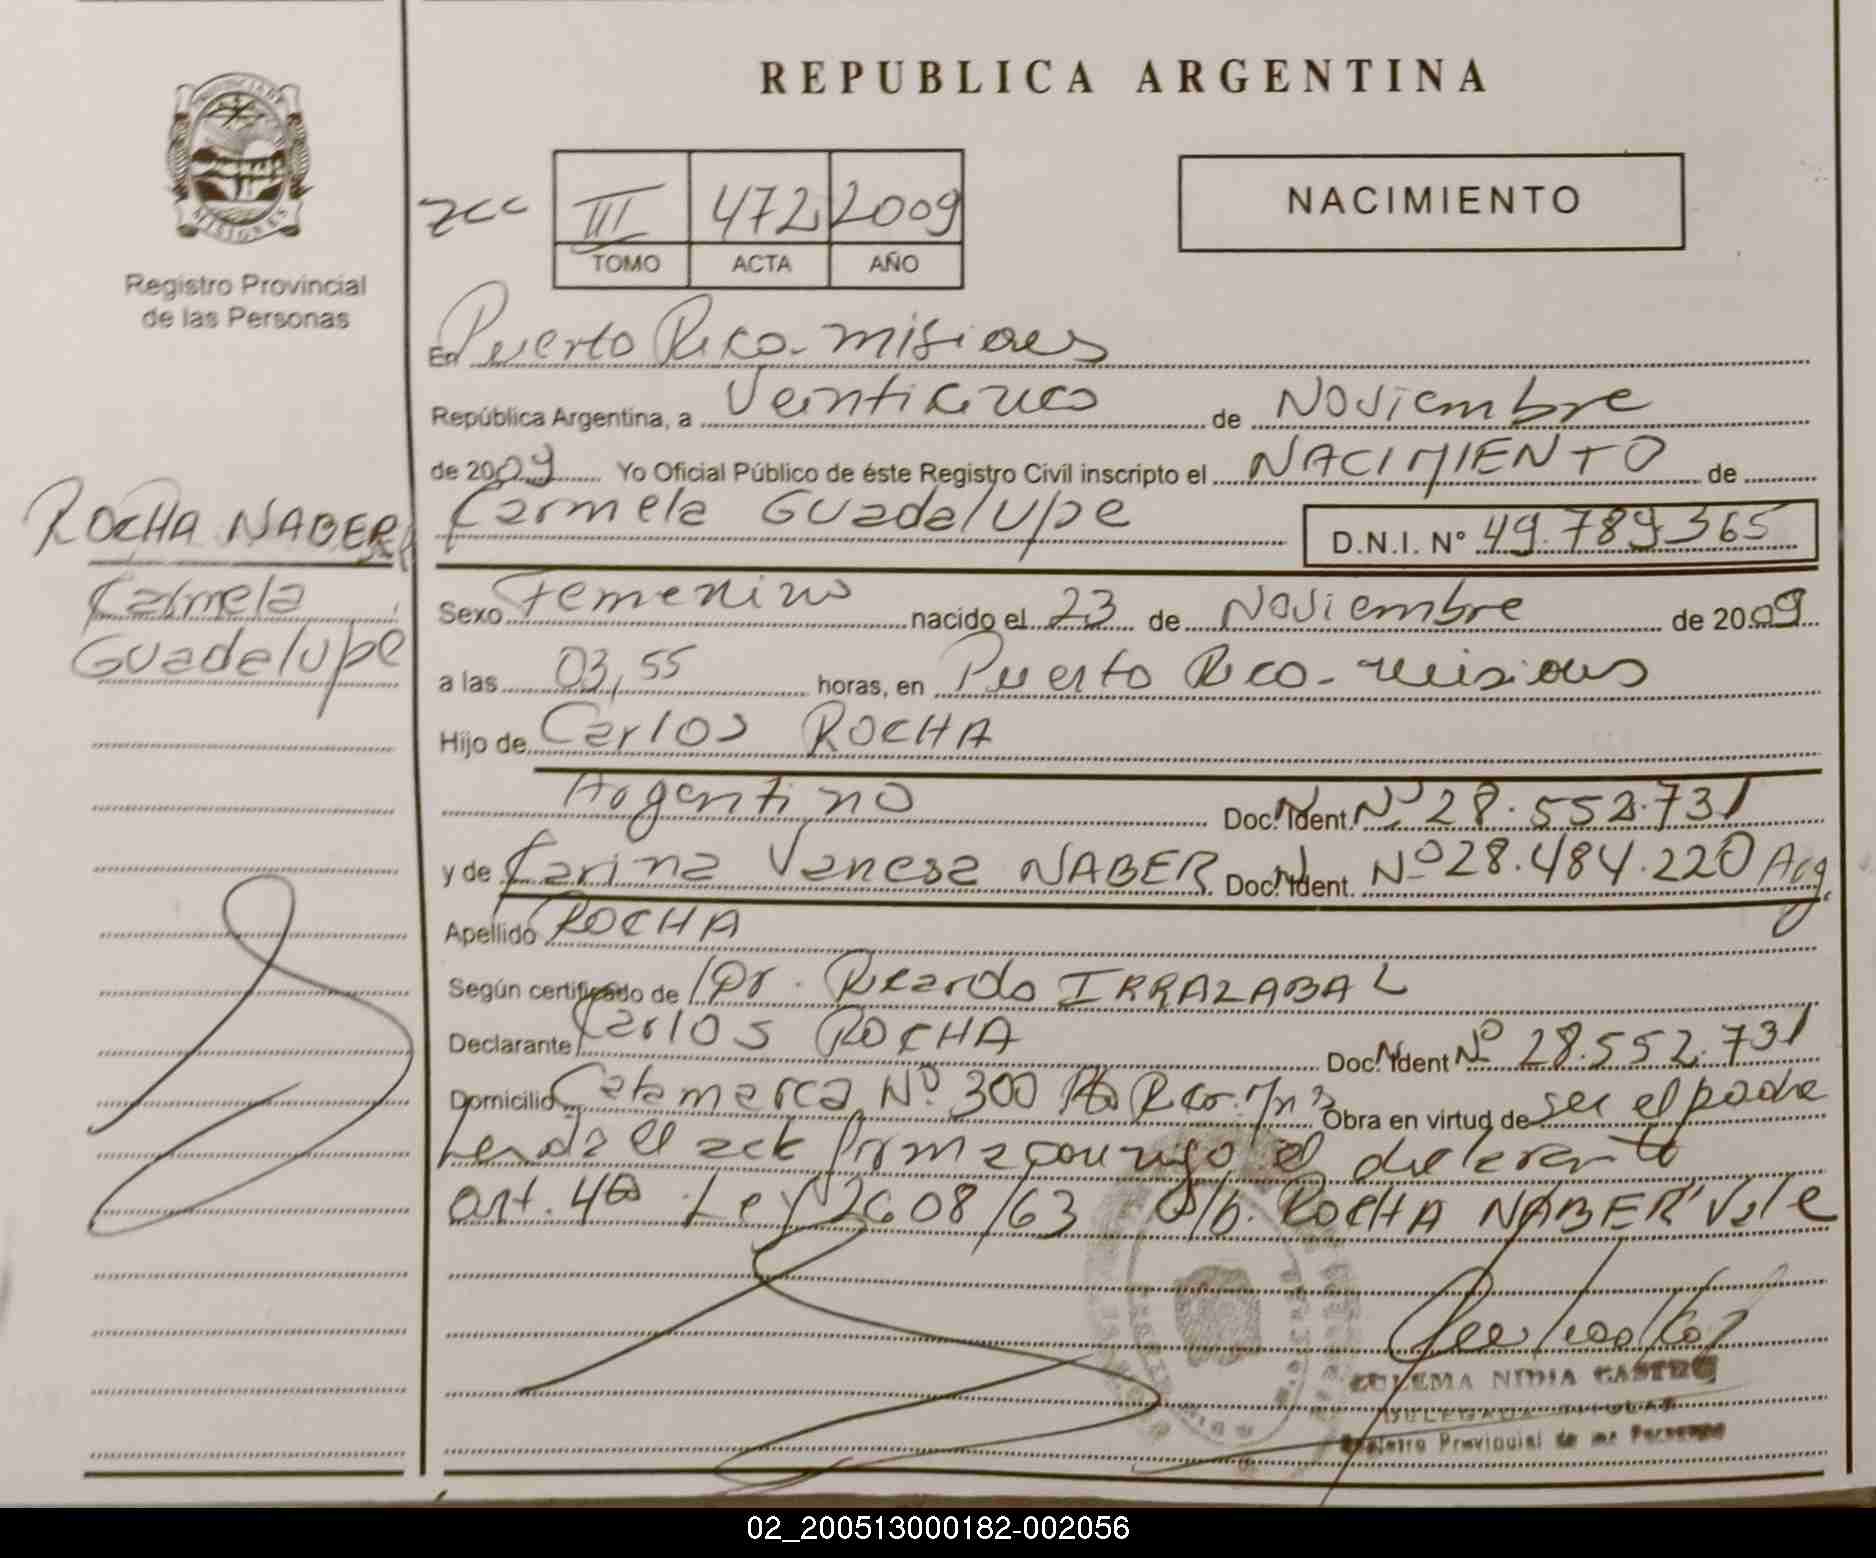 REPUBLICA ARGENTINA
PROVINCIA DE MISIONES
Registro Provincial
de las Personas
III 472 2009
TOMO ACTA AÑO
NACIMIENTO
En Puerto Rico - Misiones
República Argentina, a Veinticinco de Noviembre
de 2009 Yo Oficial Público de éste Registro Civil inscripto el NACIMIENTO de
Carmela Guadalupe D.N.I. N° 49.789.365
ROCHA NABER
Carmela
Guadalupe
Sexo Femenino nacido el 23 de Noviembre de 2009
a las 03,55 horas, en Puerto Rico - misiones
Hijo de Carlos ROCHA
Argentino Doc. Ident. Nº 28.552.731
y de Carina Vanesa NABER Doc. Ident. Nº 28.484.220 Arg.
Apellido ROCHA
Según certificado de Dr. Ricardo IRRAZABAL
Declarante Carlos ROCHA Doc. Ident Nº 28.552.731
Domicilio Catamarca Nº 300 Pto Rico. Mns Obra en virtud de ser el padre
Leida el acta firma conmigo el declarante
art. 4º Ley 2608/63 O/b. ROCHA NABER Vale
ZULEMA NIDIA CASTRO
DELEGADA TITULAR
Registro Provincial de las Personas
02_200513000182-002056